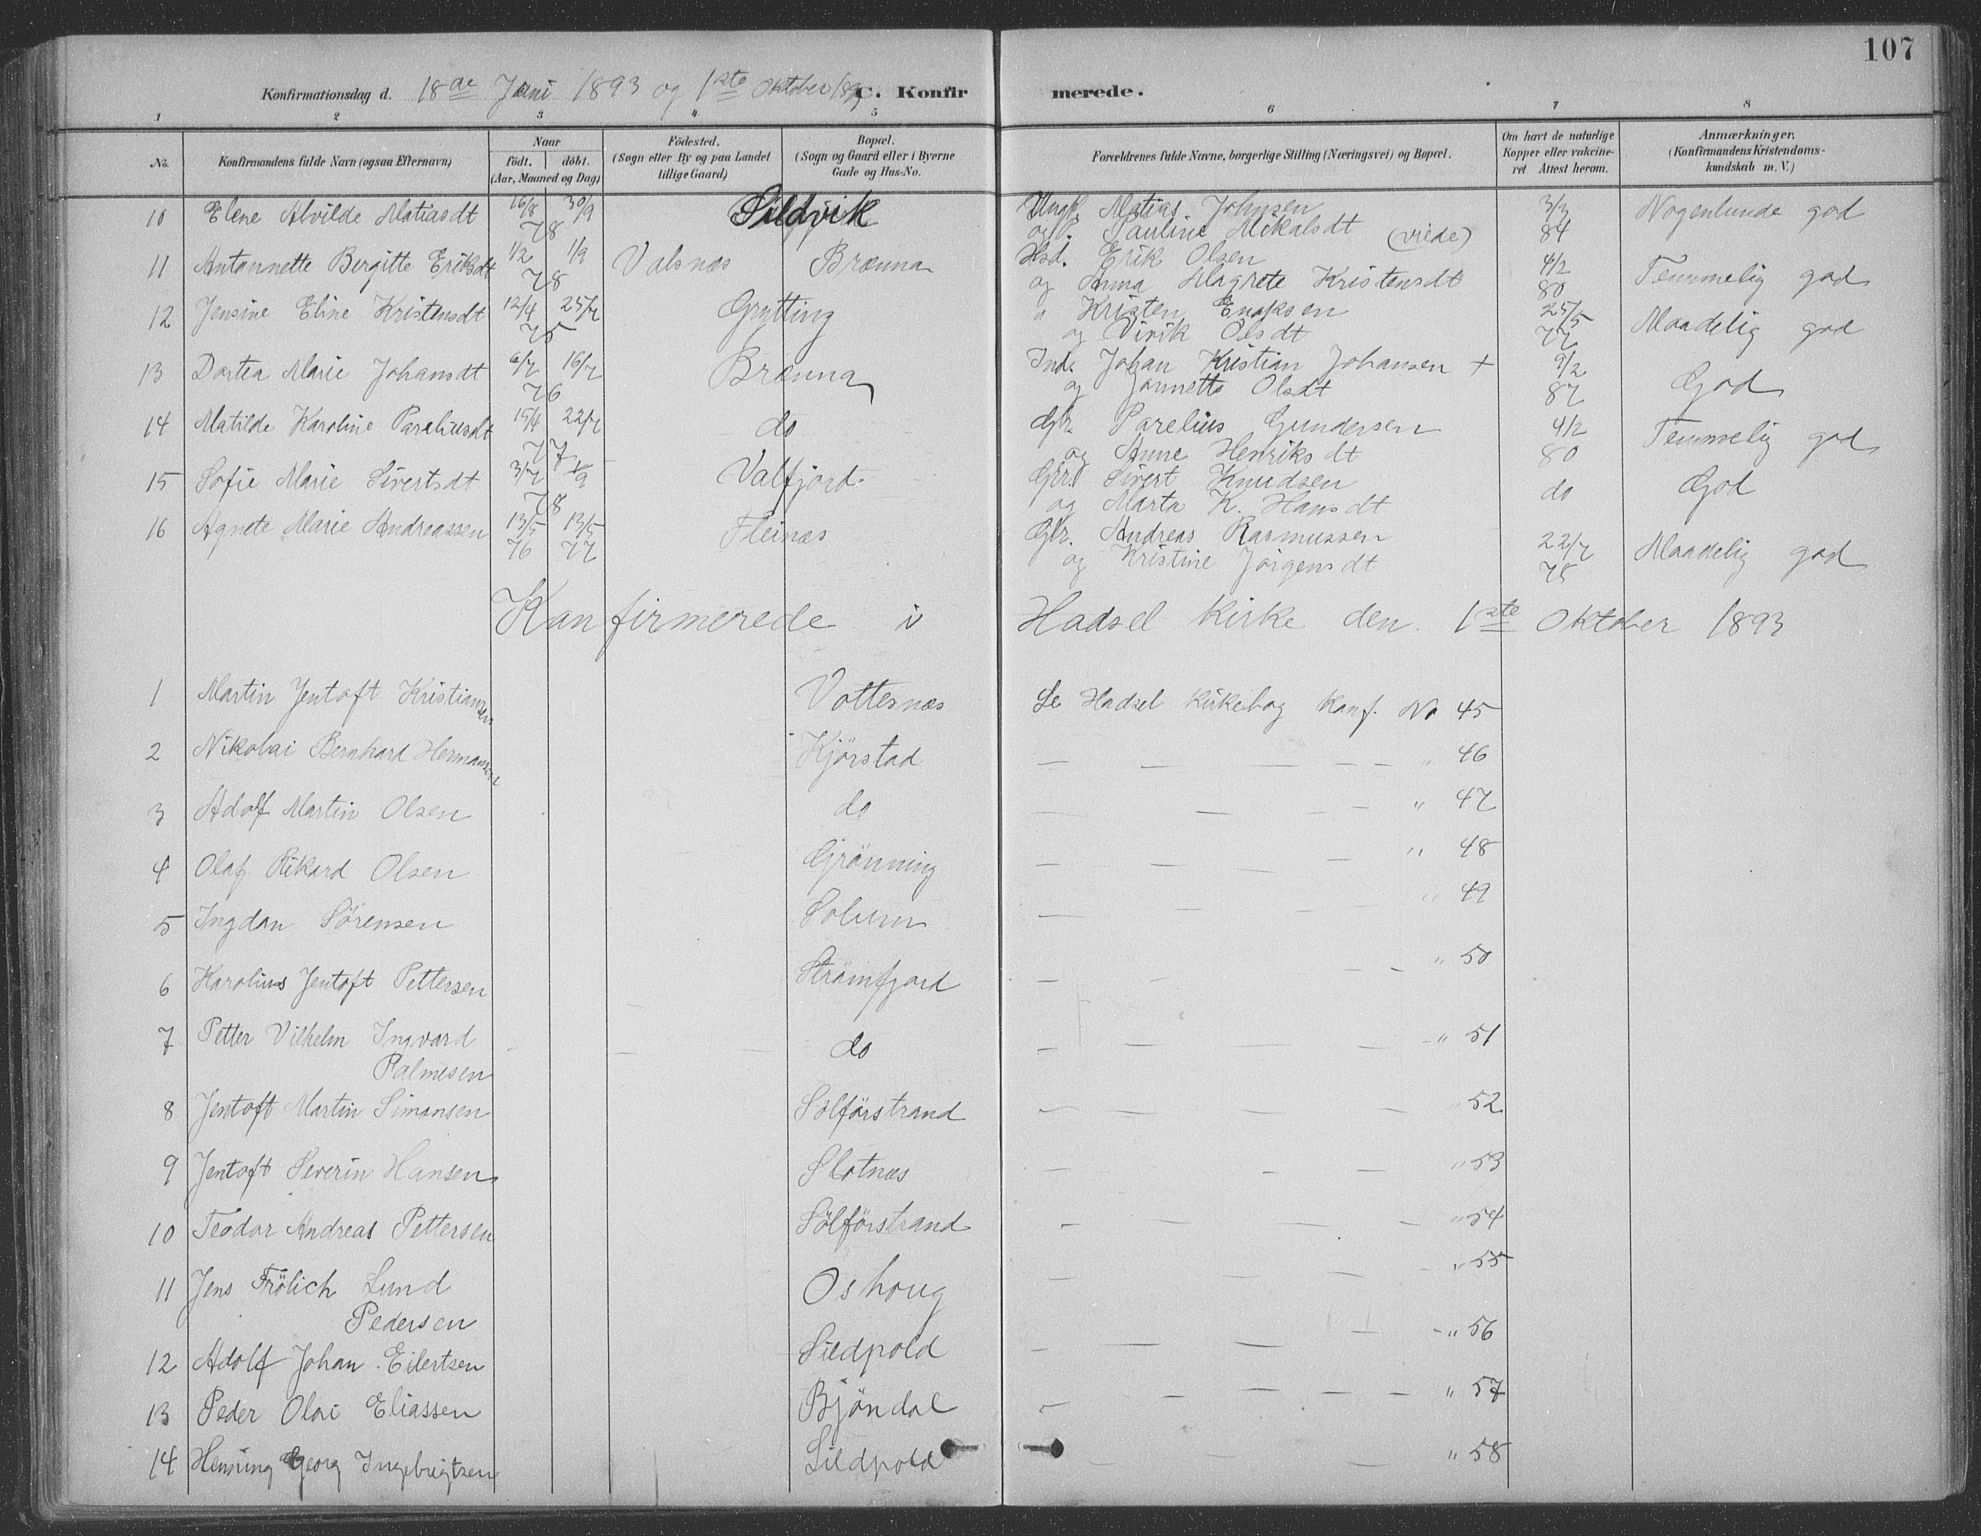 107
Konfirmationsdag d. 18de Juni 1893 og 1ste Oktober 1893 C. Konfirmerede.
1 2 3 4 5 6 7 8
No. Konfirmandens fulde Navn (ogsaa Efternavn) Naar født, døbt. (Aar, Maaned og Dag) Fødested. (Sogn eller By og paa Landet tillige Gaard) Bopæl. (Sogn og Gaard eller i Byerne Gade og Hus-No. Forældrenes fulde Navne, borgerlige Stilling (Næringsvei) og Bopæl. Om havt de naturlige Kopper eller vakcineret Attest herom. Anmærkninger. (Konfirmandens Kristendomskundskab m. V.)
10 Elene Alvilde Matiasdt 16/8 30/9 78 Sildvik Matias Johnsen 3/3 84 Nogenlunde god
Pauline Mikalsdt (viede)
11 Antonnette Bergitte Eriksdt 1/2 1/9 78 Valsnes Brænna Hsd. Erik Olsen 4/2 80 Temmelig god
og Anna Magrete Kristensdt
12 Jensine Eline Kristensdt 12/4 25/7 75 Grytting " Kristen Enoksen 25/5 77 Maadelig god
og Virik Olsdt
13 Dortea Marie Johansdt 6/7 16/7 76 Brænna Ind. Johan Kristian Johansen + 9/2 87 God
og Jannette Olsdt
14 Matilde Karoline Pareliusdt 15/4 22/7 77 do Gbr. Parelius Gundersen 4/2 80 Temmelig god
og Anne Henriksdt
15 Sofie Marie Sivertsdt 3/7 1/9 78 Valfjord Gbr. Sivert Knudsen do God
og Marta K. Hansdt
16 Agnete Marie Andreassen 13/5 76 13/5 77 Fleinæs Gbr. Andreas Rasmussen 22/7 78 Maadelig god
og Kristine Jörgensdt
Konfirmerede i Hadsel Kirke den 1ste Oktober 1893
1 Martin Jentoft Kristiansen Vottesnæs Se Hadsel Kirkebog Konf. No 45
2 Nikolai Bernhard Hermansen Kjörstad — — — — " 46
3 Adolf Martin Olsen do — — — — " 47
4 Olaf Rikard Olsen Grönning — — — " 48
5 Ingdan Sörensen Solum — — — " 49
6 Karolius Jentoft Pettersen Strömfjord — — — — " 50
7 Petter Vilhelm Ingvard do — — — — " 51
Palmesen
8 Jentoft Martin Simonsen Sölförstrand — — — — " 52
9 Jentoft Severin Hansen Slotnæs — — — " 53
10 Teodor Andreas Pettersen Sölförstrand — — — — " 54
11 Jens Frölich Lund Oshoug — — — — " 55
Pedersen
12 Adolf Johan Eilertsen Sildpold — — — — " 56
13 Peder Olai Eliassen Bjöndal — — — — " 57
14 Henning Georg Ingebrigtsen Sildpold — — — — " 58